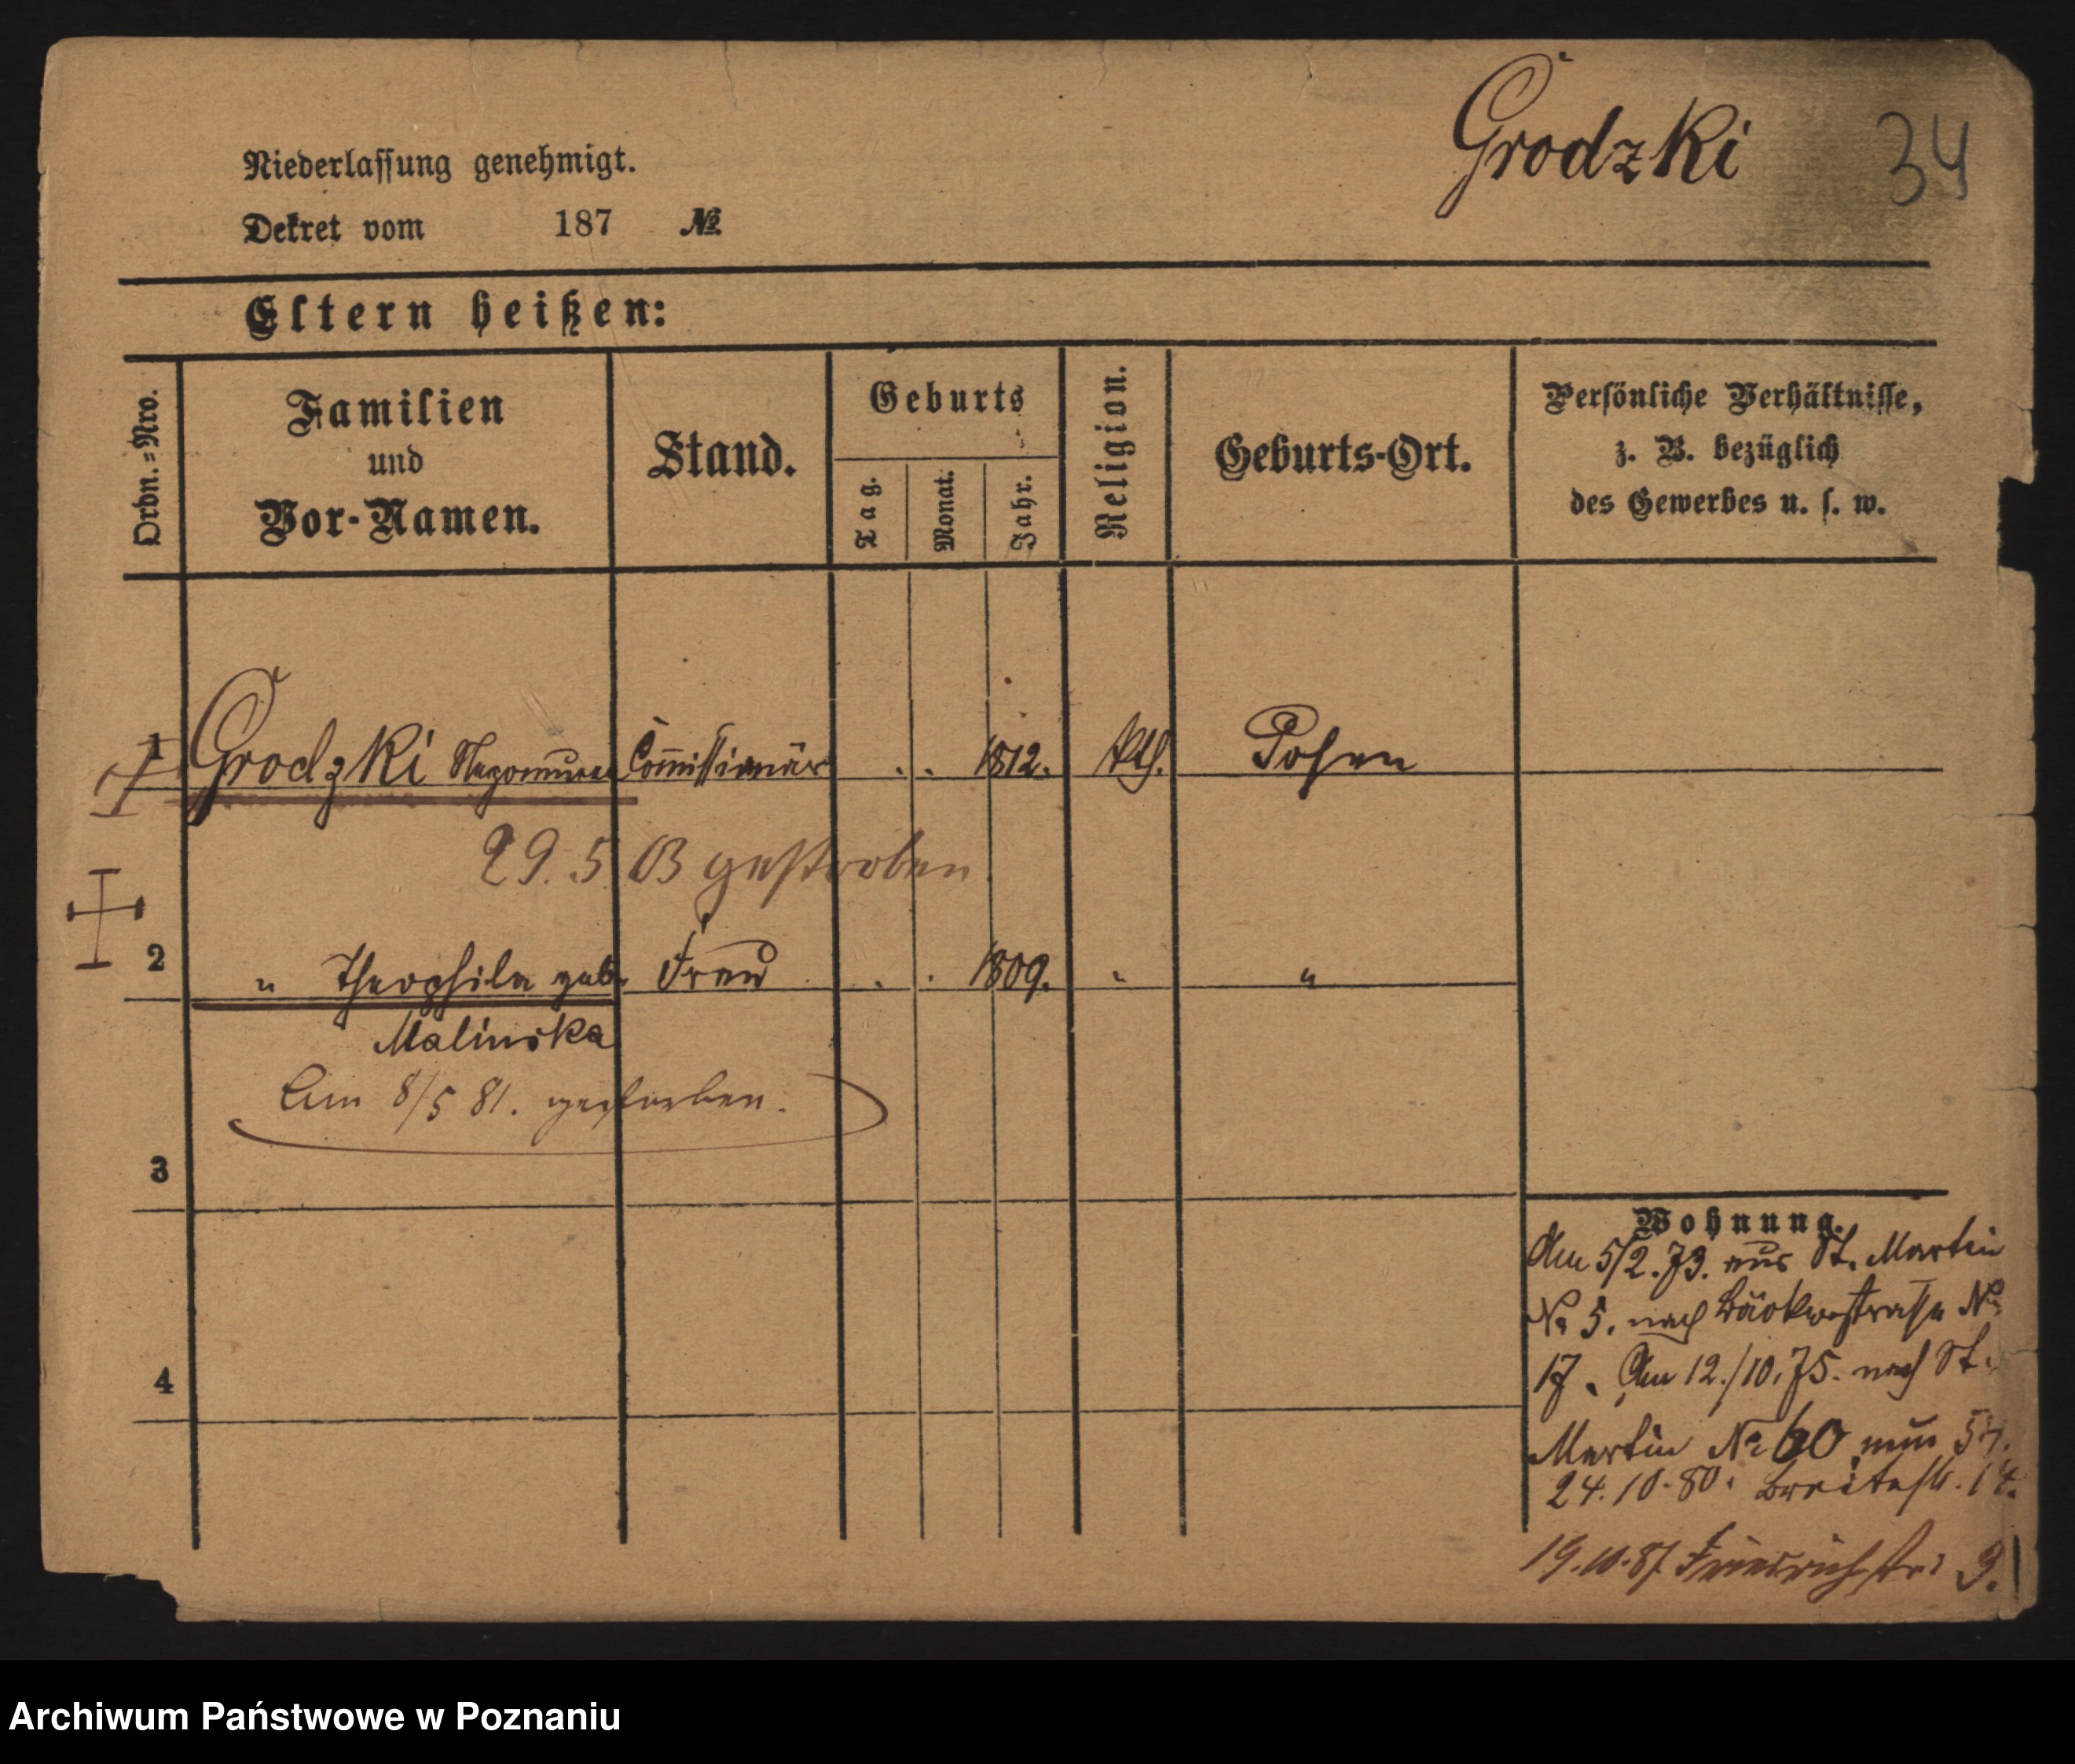 Grodzki 34
Niederlassung genehmigt.
Dekret vom 187 №
Eltern heißen:
Ordn.=Nro.
Familien
und
Vor-Namen.
Stand.
Geburts
Tag.
Monat.
Jahr.
Religion.
Geburts-Ort.
Persönliche Verhältnisse,
z. B. bezüglich
des Gewerbes u. s. w.
1 Grodzki Commissionär . . 1812. kth. Posen
29. 5 gestorben
2 " Theophila geb. Frau . . 1809. " "
Malinska
Am 8/5 81. gestorben.
3
4
Wohnung.
Am 5/2. 73. aus St. Martin
№ 5. nach Bäckerstrasse №
17. Am 12./10. 75. nach St.
Martin № 60 nun 57.
24. 10. 80. Breitestr. 14.
19. 10. 87 Friedrichstr. 31
Archiwum Państwowe w Poznaniu